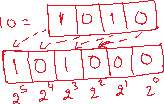 10 = 1 0 1 0
1 0 1 0 0 0
2⁵ 2⁴ 2³ 2² 2¹ 2⁰